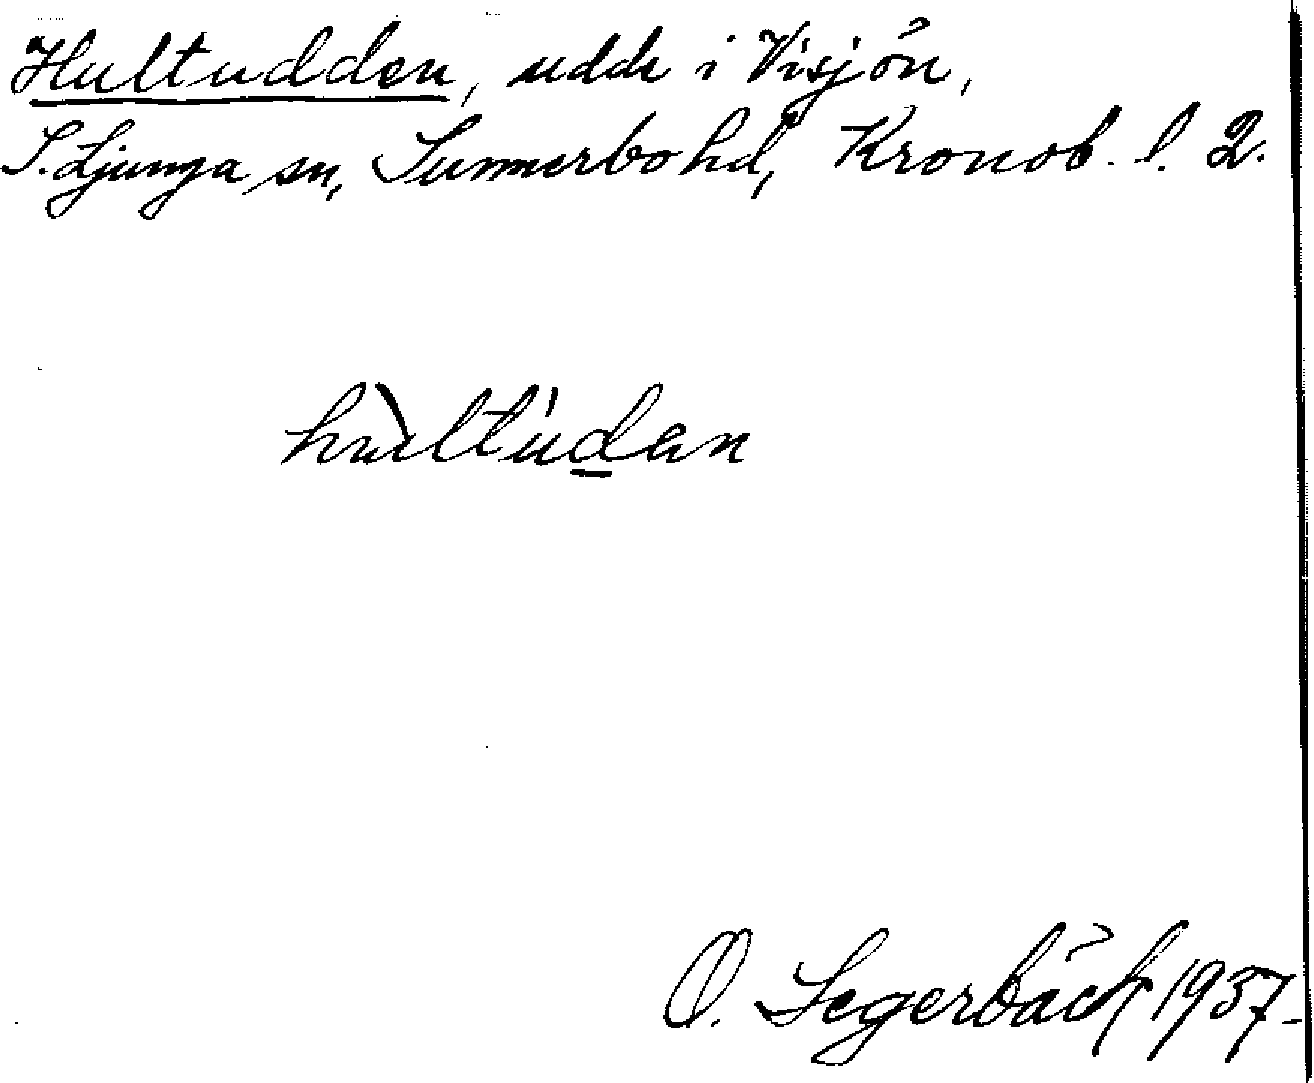 Hultudden, udde i Visjön,
S. Ljunga sn, Sunnerbo hd, Kronob. l. 2.
hùltúdan
O. Segerbäck 1937.